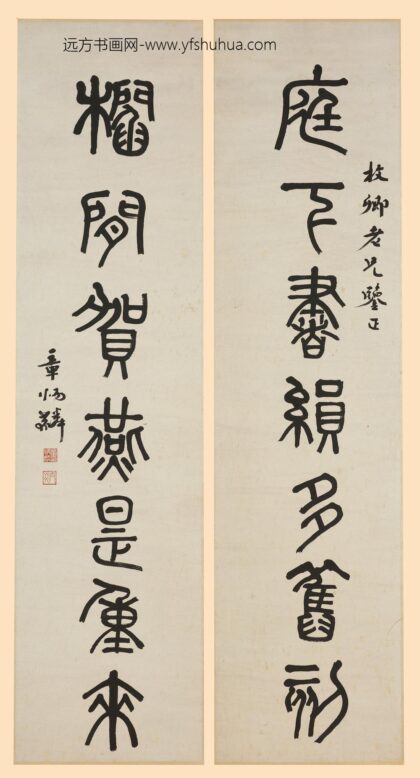 远方书画网-www.yfshuhua.com
枚卿老兄鑒正
庭下書縜多舊刻
櫩間賀燕是重來
章炳麟